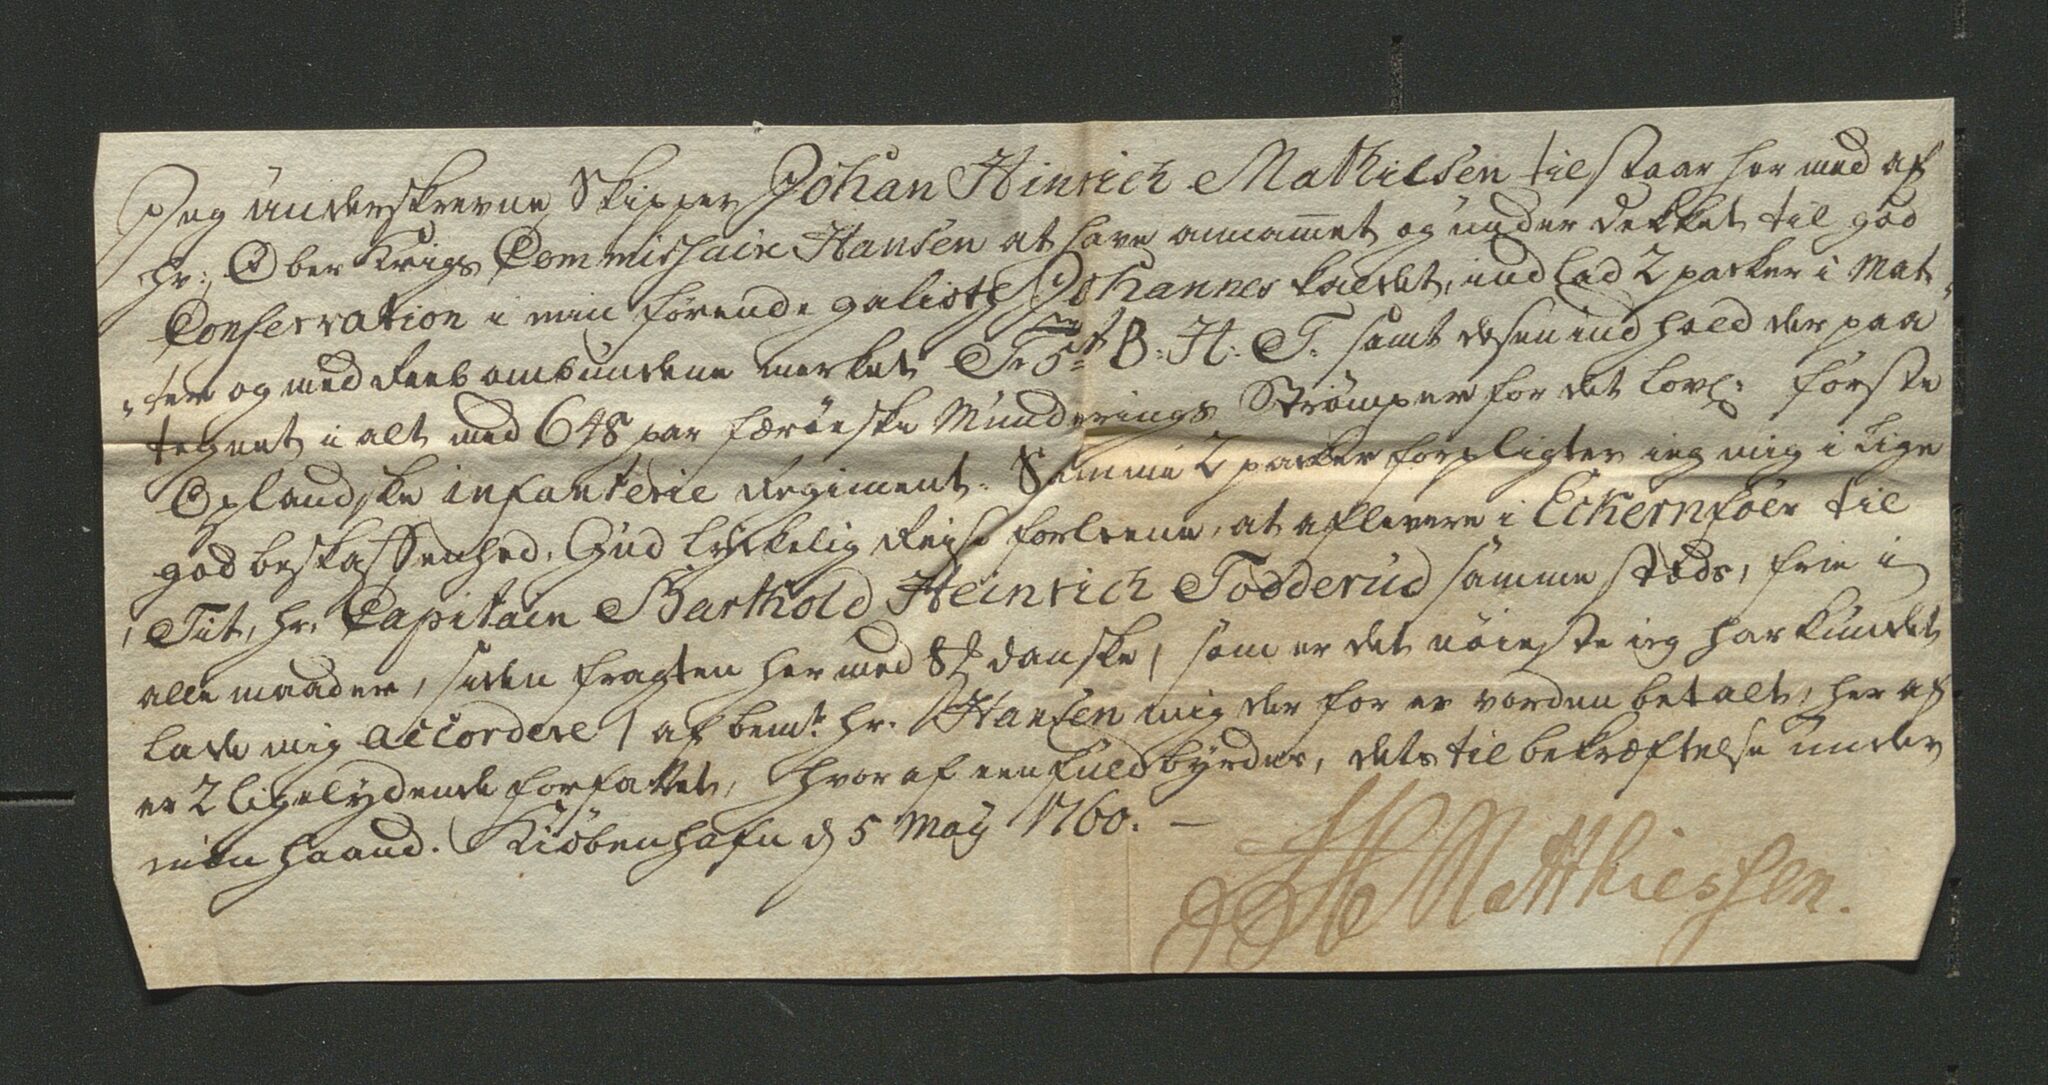 Jeg underskrevne Skipper Johan Hinrich Mathiesen tilstaar her med af
Hr: Ober Krigs Commishair Hansen at have anammet og under dekket til god
Conservation i min førende galioth Johannes kaldet, ind lad 2 pakker i Mat-
ter og med Reeb ombundene merket B: H: T: samt desen ind hold der paa
tegnet i alt med 648 par færöeske Munderings Strømper for det Lovl: første
Oplandske infanterie Regiment. Samme 2 pakker forpligter ieg mig i lige
god beskaffenhed, Gud lykkelig Reise forleene, at aflevere i Eckernföer til
Tit, hr. Capitain Barthold Heinrich Todderud samme steds, frie i
alle maader, siden fragten her med 8 danske, som er det nöieste ieg har kundet
lade mig accordere / af bemte hr. Hansen mig der for er vorden betalt, her af
er 2 ligelydende forfattet, hvor af een fuldbyrdes, dets til bekræftelse under
min haand. Kiöbenhafn d 5 May 1760. —
JH Matthiessen.